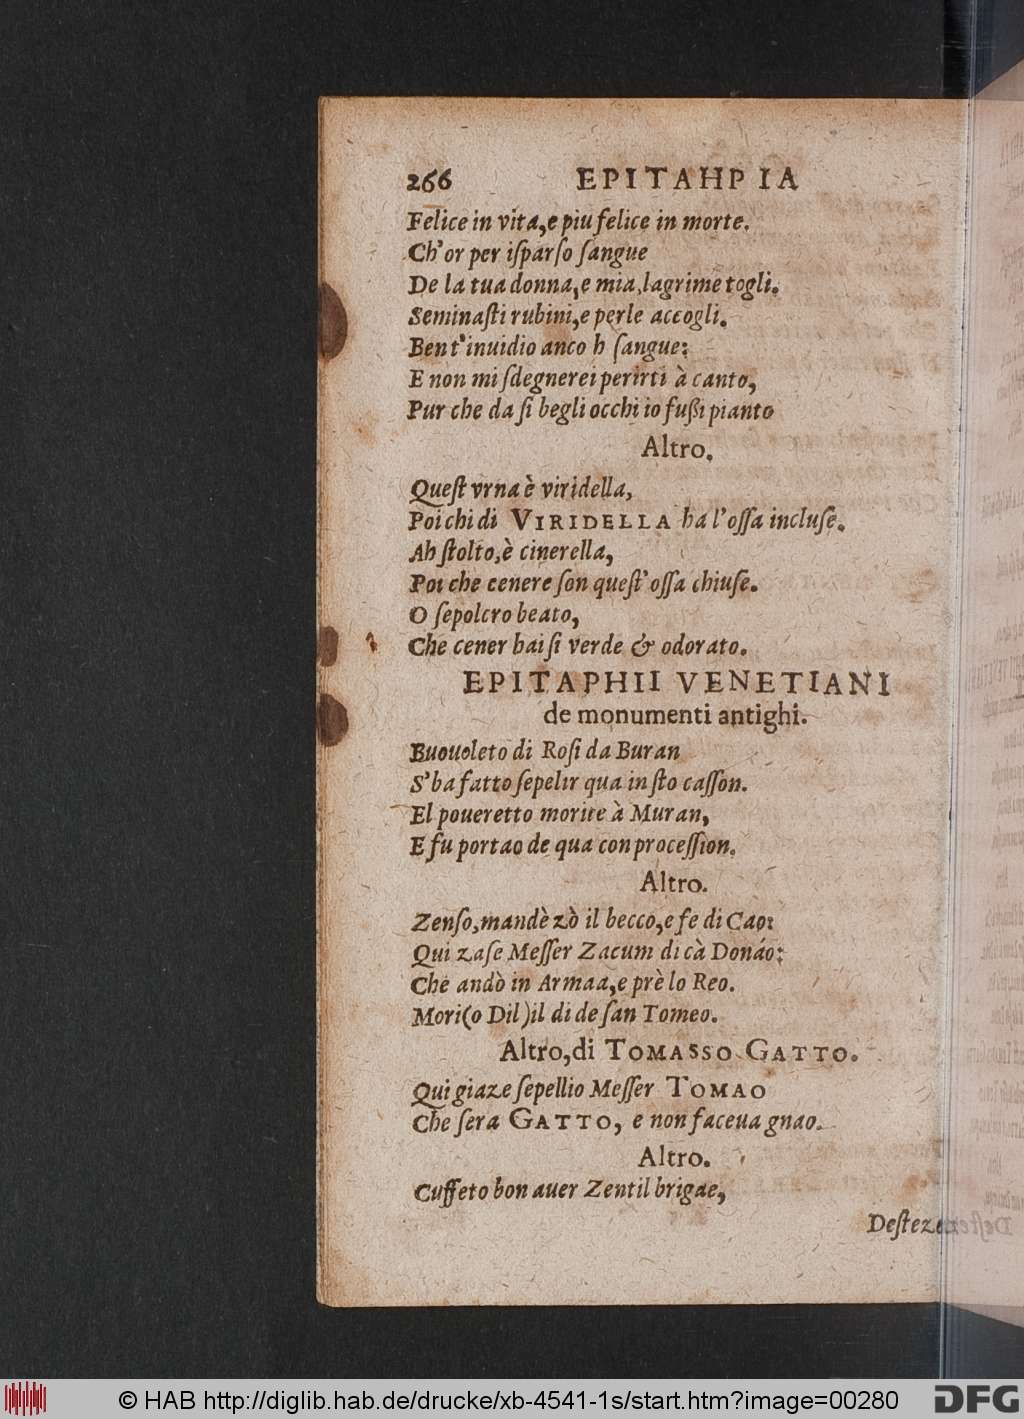 266 EPITAHPIA
Felice in vita, e piu felice in morte.
Ch'or per iſparſo ſangue
De la tua donna, e mia, lagrime togli.
Seminaſti rubini, e perle accogli.
Ben t'inuidio anco h ſangue:
E non mi ſdegnerei perirti à canto,
Pur che da ſi begli occhi io fuſſi pianto
Altro.
Queſt vrna è viridella,
Poi chi di VIRIDELLA ha l'oſſa incluſe.
Ah ſtolto, è cinerella,
Poi che cenere ſon queſt'oſſa chiuſe.
O ſepolcro beato,
Che cener hai ſi verde & odorato.
EPITAPHII VENETIANI
de monumenti antighi.
Buouoleto di Roſi da Buran
S'ha fatto ſepelir qua in ſto caſſon.
El poueretto morite à Muran,
E fu portao de qua con proceſſion.
Altro.
Zenſo, mandè zò il becco, e fe di Cao:
Qui zaſe Meſſer Zacum di cà Donáo:
Che andò in Armaa, e prè lo Reo.
Mori (o Dil) il di de ſan Tomeo.
Altro, di TOMASSO GATTO.
Qui giaze ſepellio Meſſer TOMAO
Che ſera GATTO, e non faceua gnao.
Altro.
Cuffeto bon auer Zentil brigae,
© HAB http://diglib.hab.de/drucke/xb-4541-1s/start.htm?image=00280
DFG